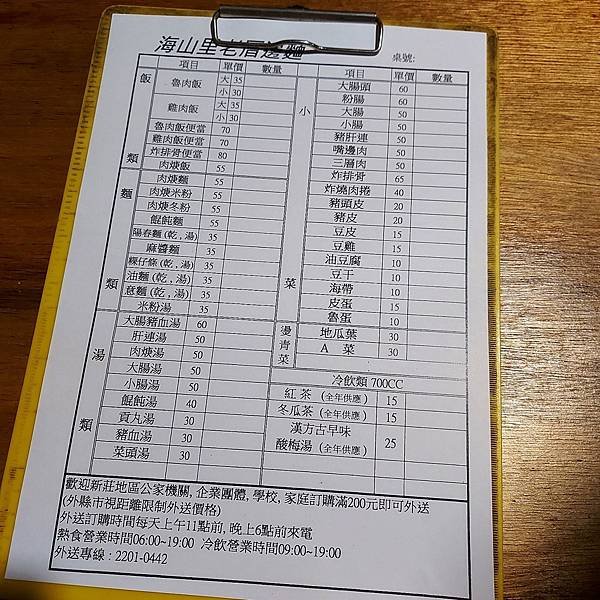 海山里老厝邊麵
桌號:
項目 單價 數量
飯類
魯肉飯 大 35
小 30
雞肉飯 大 35
小 30
魯肉飯便當 70
雞肉飯便當 70
炸排骨便當 80
肉焿飯 55
麵類
肉焿麵 55
肉焿米粉 55
肉焿冬粉 55
餛飩麵 55
陽春麵 (乾,湯) 35
麻醬麵 35
粿仔條 (乾,湯) 35
油麵 (乾,湯) 35
意麵 (乾,湯) 35
米粉湯 35
湯類
大腸豬血湯 60
肝連湯 50
肉焿湯 50
大腸湯 50
小腸湯 50
餛飩湯 40
貢丸湯 30
豬血湯 30
菜頭湯 30
項目 單價 數量
小菜
大腸頭 60
粉腸 60
大腸 50
小腸 50
豬肝連 50
嘴邊肉 50
三層肉 50
炸排骨 65
炸燒肉捲 40
豬頭皮 20
豬皮 20
豆皮 15
豆雞 15
油豆腐 10
豆干 10
海帶 10
皮蛋 15
魯蛋 10
燙青菜
地瓜葉 30
A 菜 30
冷飲類 700CC
紅茶 (全年供應) 15
冬瓜茶 (全年供應) 15
漢方古早味
酸梅湯 (全年供應) 25
歡迎新莊地區公家機關, 企業團體, 學校, 家庭訂購滿200元即可外送
(外縣市視距離限制外送價格)
外送訂購時間每天上午11點前, 晚上6點前來電
熱食營業時間06:00~19:00 冷飲營業時間09:00~19:00
外送專線 : 2201-0442